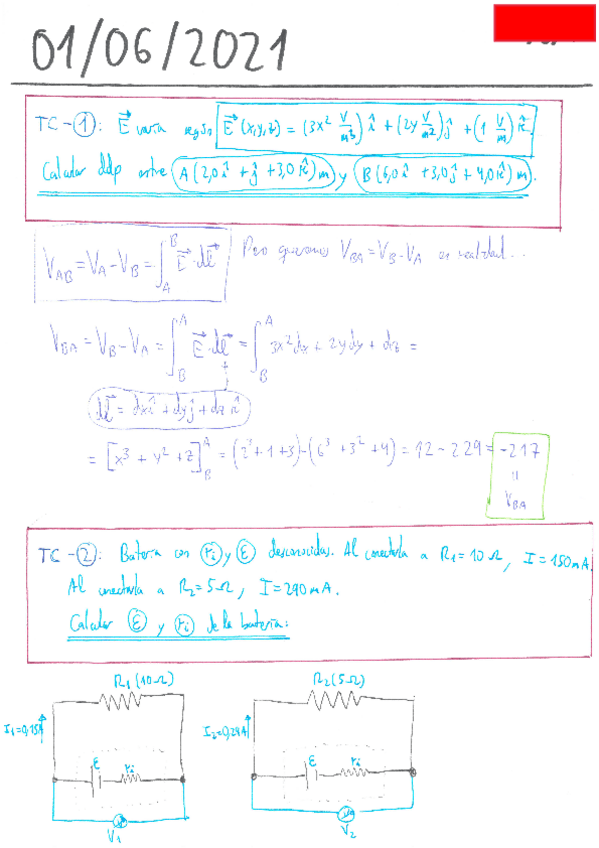 01/06/2021
TC-①: E⃗ varía según E⃗(x,y,z) = (3x² V/m³) î + (2y V/m²) ĵ + (1 V/m) k̂.
Calcular ddp entre A(2,0î + ĵ + 3,0k̂)m y B(6,0î + 3,0ĵ + 4,0k̂)m.
V_AB = V_A - V_B = ∫_A^B E⃗·dl⃗ Pero queremos V_BA = V_B - V_A en realidad...
V_BA = V_B - V_A = ∫_B^A E⃗·dl⃗ = ∫_B^A 3x²dx + 2ydy + dz =
dl⃗ = dxî + dyĵ + dzk̂
= [x³ + y² + z]_B^A = (2³+1+3)-(6³+3²+4) = 12-229 = -217
=
V_BA
TC-②: Batería con r_i y ε desconocidas. Al conectarla a R₁=10Ω, I=150mA.
Al conectarla a R₂=5Ω, I=290mA.
Calcular ε y r_i de la batería:
R₁(10Ω) R₂(5Ω)
I₁=0,15A I₂=0,29A
ε r_i ε r_i
V₁ V₂